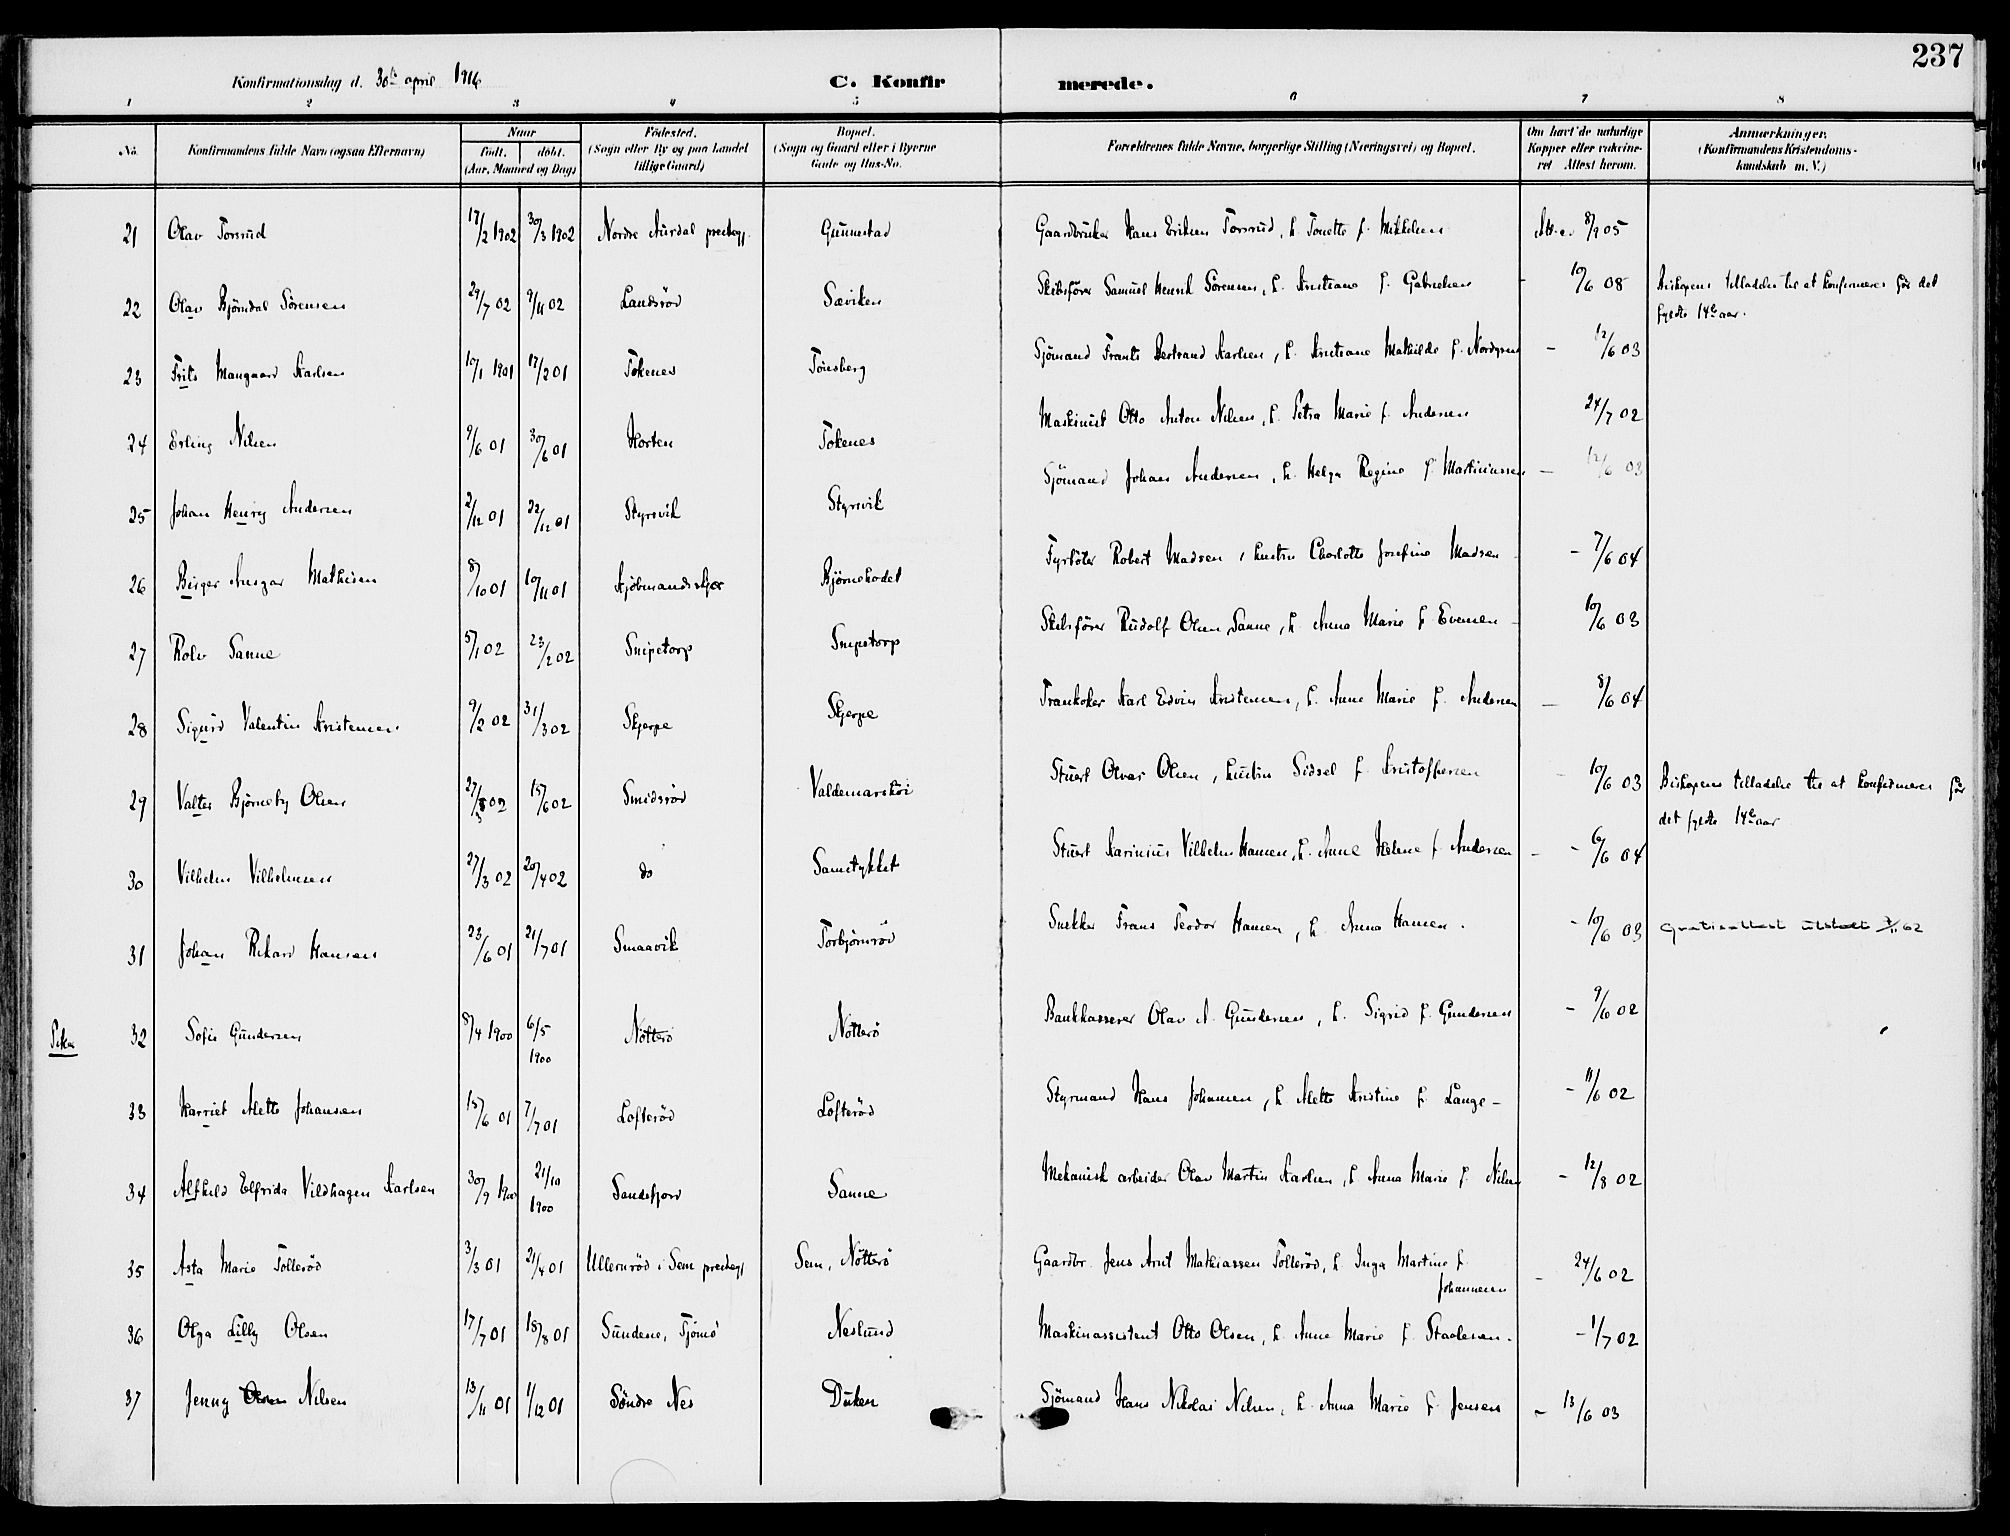 237
Konfirmationsdag d. 30te april 1916
C. Konfirmerede.
1 2 3 4 5 6 7 8
No. Konfirmandens fulde Navn (ogsaa Efternavn) Naar født. døbt. (Aar, Maaned og Dag) Fødested. (Sogn eller By og paa Landet tillige Gaard) Bopæl. (Sogn og Gaard eller i Byerne Gade og Hus-No. Forældrenes fulde Navne, borgerlige Stilling (Næringsvei) og Bopæl. Om havt de naturlige Kopper eller vakcineret Attest herom. Anmærkninger. (Konfirmandens Kristendomskundskab m. V.)
21 Olav Torsrud 17/2 1902 30/3 1902 Nordre Aurdal prestegj. Gunnestad Gaardbruker Hans Eriksen Torsrud, h. Tonette f. Mikkelsen 8/9 05
22 Olav Bjørndal Sørensen 29/7 02 9/11 02 Landsrød Sæviken Skibsfører Samuel Henrik Sørensen, h. Kristiane f. Gabrielsen - 10/6 08 Biskopens tilladelse til at konfirmeres før det
fyldte 14de aar.
23 Frits Mangaard Karlsen 10/1 1901 17/2 01 Tokenes Tønsberg Sjømand Frants Bertrand Karlsen, h. Kristiane Mathilde f. Nordgren - 12/6 03
24 Erling Nilsen 9/6 01 30/6 01 Horten Tokenes Maskinist Otto Anton Nilsen, h. Petra Marie f. Andersen 24/7 02
25 Johan Henry Andersen 2/12 01 22/12 01 Styrsvik Styrsvik Sjømand Johan Andersen, h. Helga Regine f. Martiniussen - 12/6 03
26 Birger Ansgar Mathisen 8/10 01 10/11 01 Kjøbmandskjær Bjørnehodet Fyrbøter Robert Madsen, hustru Charlotte Josefine Madsen - 7/6 04
27 Rolv Sanne 5/1 02 23/2 02 Snipetorp Snipetorp Skibsfører Rudolf Olsen Sanne, h. Anna Marie f. Evensen - 10/6 03
28 Sigurd Valentin Kristensen 9/2 02 31/3 02 Skjerpe Skjerpe Trankoker Karl Edvin Kristensen, h. Anne Marie f. Andersen - 8/6 04
29 Valter Bjørneby Olsen 27/3 02 15/6 02 Smidsrød Valdemarskøi Stuert Olvar Olsen, hustru Sidsel f. Kristoffersen - 10/6 03 Biskopens tilladelse til at konfirmeres før
det fyldte 14de aar
30 Vilhelm Vilhelmsen 27/3 02 20/4 02 do Samstykket Stuert Karinius Vilhelm Hansen, h. Anne Helene f. Andersen - - 6/6 04
31 Johan Rikard Hansen 23/6 01 21/7 01 Smaavik Torbjørnsrød Snekker Frans Teodor Hansen, h. Anna Hansen. - 10/6 03 Gratisattest utstedt 3/11 62
Piker 32 Sofie Gundersen 8/4 1900 6/5 1900 Nøtterø Nøtterø Bankkasserer Olav A. Gundersen, h. Sigrid f. Gundersen - 9/6 02
33 Harriet Alette Johansen 15/6 01 7/7 01 Lofterød Lofterød Styrmand Hans Johansen, h. Alette Kristine f. Lange - - 11/6 02
34 Alfhild Elfrida Vildhagen Karlsen 30/9 1900 21/10 1900 Sandefjord Sanne Mekanisk arbeider Olav Martin Karlsen, h. Anna Marie f. Nilsen - 12/8 02
35 Asta Marie Tolterød 3/3 01 21/4 01 Ullernrød i Sem prestegj. Sem, Nøtterø Gaardbr. Jens Arnt Mathiassen Tolterød, h. Inga Martine f. Johannesen - 24/6 02
36 Olga Lilly Olsen 17/7 01 18/8 01 Sundene, Tjømø Neslund Maskinassistent Otto Olsen, h. Anne Marie f. Staalesen. - 1/7 02
37 Jenny Olsen Nilsen 13/11 01 1/12 01 Søndre Nes Duken Sjømand Hans Nikolai Nilsen, h. Anna Marie f. Jensen - 13/6 03